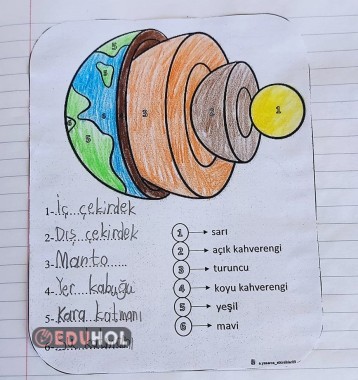 5
3
6
5
3
2
1
1- İç...çekirdek
2- Dış çekirdek
3- Manto......
4- Yer....kabuğu
5- Kara katmanı
1 → sarı
2 → açık kahverengi
3 → turuncu
4 → koyu kahverengi
5 → yeşil
6 → mavi
EDUHOL